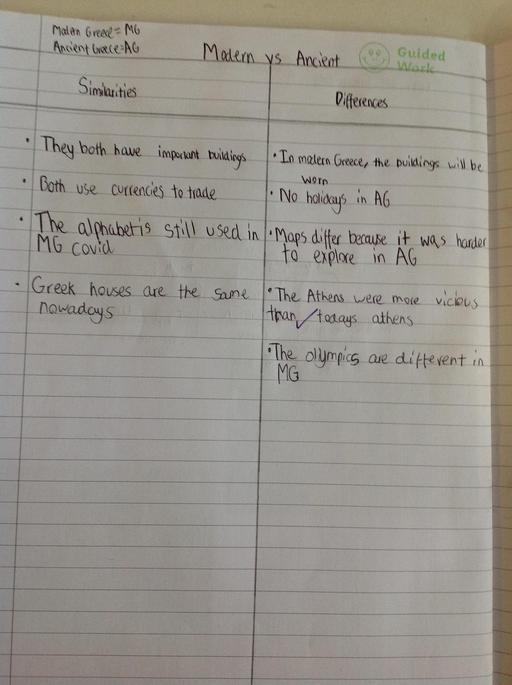 Modern Greece = MG
Ancient Greece = AG
Modern vs Ancient
Guided
Work
Similarities
• They both have important buildings
• Both use currencies to trade
• The alphabet is still used in
MG covid
• Greek houses are the same
nowadays
Differences
• In modern Greece, the buildings will be
worn
• No holidays in AG
• Maps differ because it was harder
to explore in AG
• The Athens were more vicious
than todays athens
• The olympics are different in
MG